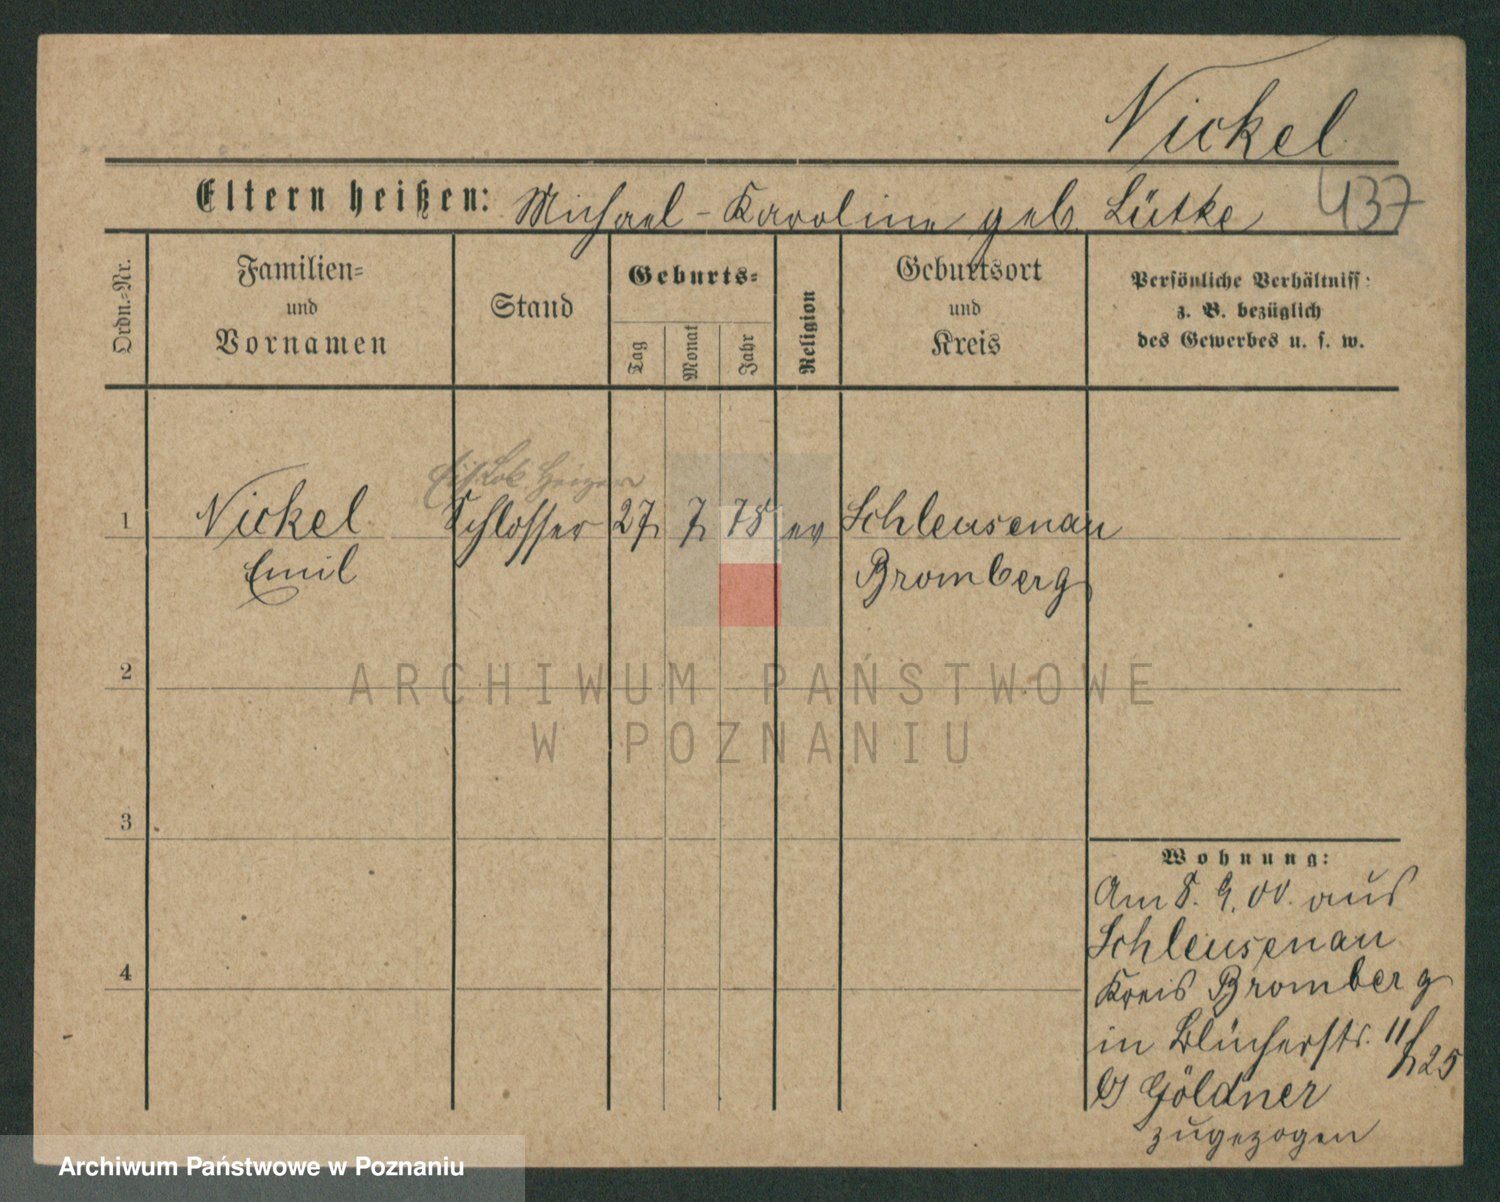 Nickel
Eltern heißen: Michael - Karoline geb. Lütke 437
Ordn.-Nr.
Familien-
und
Vornamen
Stand
Geburts-
Tag
Monat
Jahr
Religion
Geburtsort
und
Kreis
Persönliche Verhältniss:
z. B. bezüglich
des Gewerbes u. s. w.
Heizer
1 Nickel Schlosser 27 7 78 ev Schleusenau
Emil Bromberg
2
ARCHIWUM PAŃSTWOWE
W POZNANIU
3
Wohnung:
Am 8. 9. 00. aus
Schleusenau
4
Kreis Bromberg
in Blücherstr. 11/25
b/ Göldner
zugezogen
Archiwum Państwowe w Poznaniu